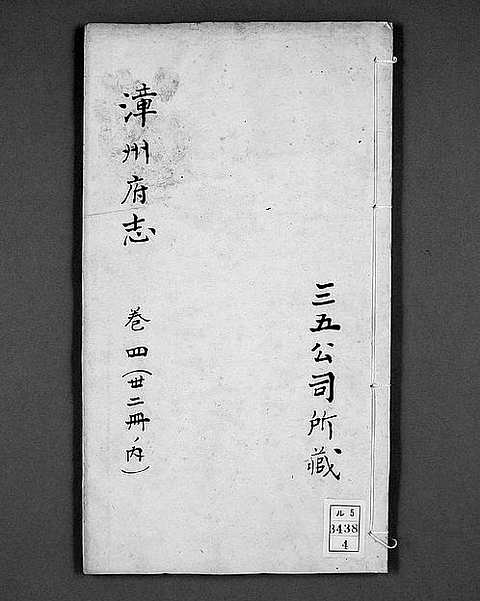 三五公司所藏
漳州府志
巻四(卅二冊ノ内)
ル5
3438
4